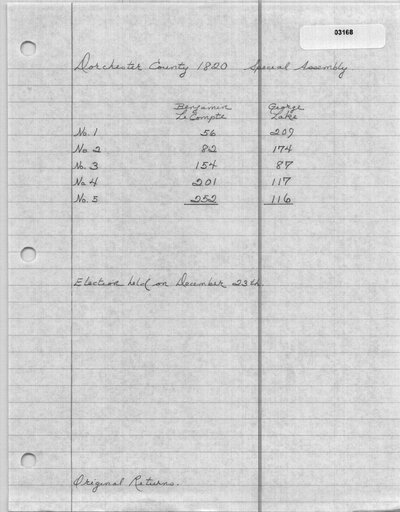 03168
Dorchester County 1820 Special Assembly
Benjamin George
LeCompte Lake
No. 1 56 209
No. 2 82 174
No. 3 154 87
No. 4 201 117
No. 5 252 116
Election held on December 23th.
Original Returns.